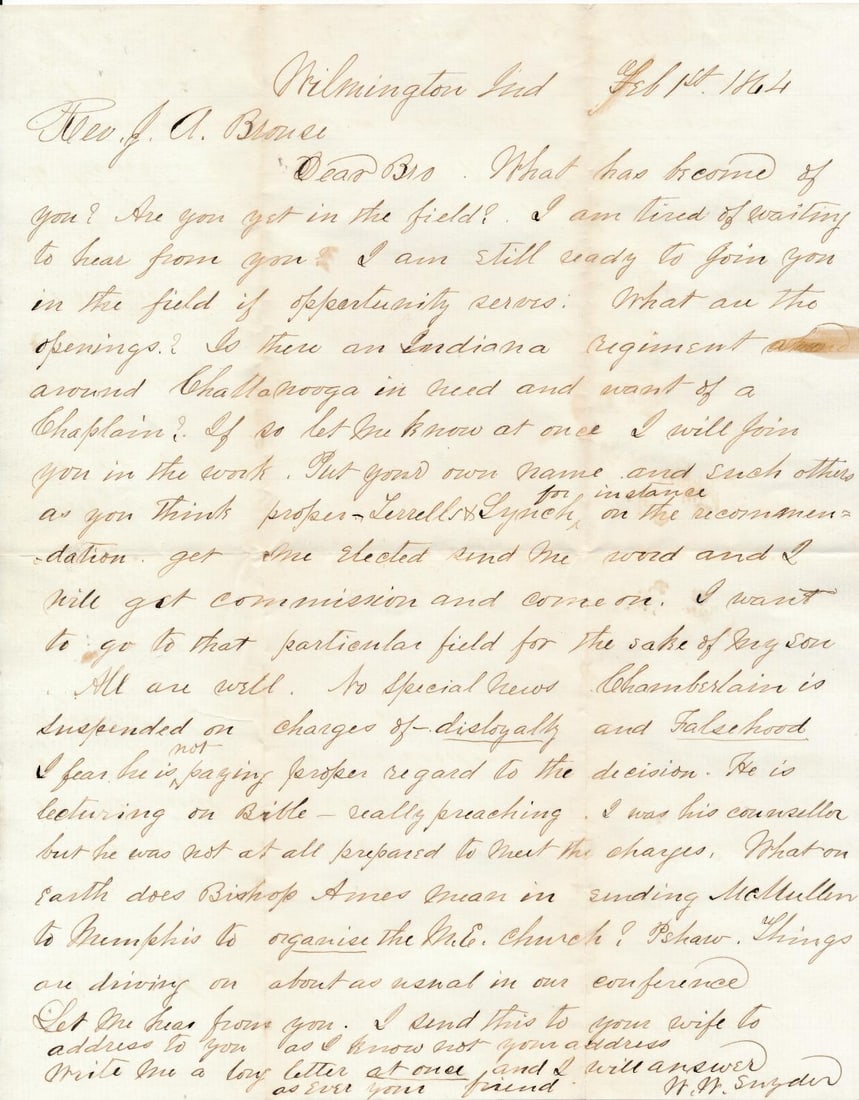 Wilmington Ind Feb 1st. 1864
Rev. J. A. Brouse
Dear Bro. What has become of
you? Are you yet in the field? I am tired of waiting
to hear from you. I am still ready to join you
in the field if opportunity serves. What are the
openings? Is there an Indiana regiment
around Chattanooga in need and want of a
Chaplain? If so let me know at once I will join
you in the work. Put your own name and such others
for instance
as you think proper - Terrells & Lynch, on the recommen=
dation. get me elected send me word and I
will get commission and come on. I want
to go to that particular field for the sake of my son
All are well. No special news Chamberlain is
suspended on charges of - disloyalty and Falsehood
not
I fear he is paying proper regard to the decision. He is
lecturing on Bible - really preaching. I was his counsellor
but he was not at all prepared to meet the charges. What on
Earth does Bishop Ames mean in sending McMullen
to Memphis to organise the M.E. church? Pshaw. Things
are driving on about as usual in our conference
Let me hear from you. I send this to your wife to
address to you as I know not your address
Write me a long letter at once and I will answer
as ever your friend W. W. Snyder